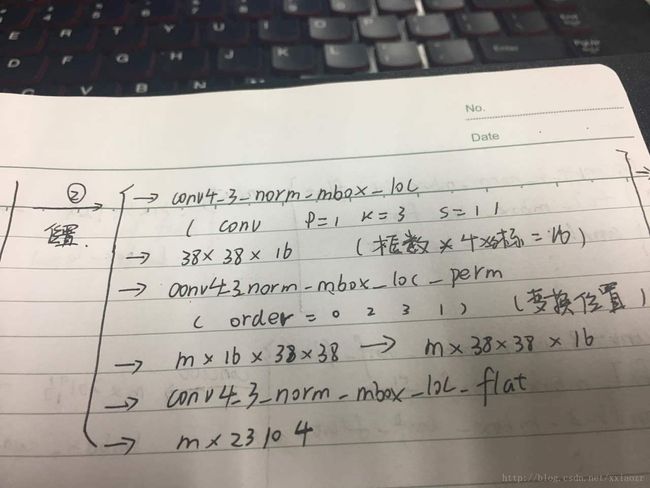 No.
Date
② → conv4_3_norm_mbox_loc
位置.
( conv P=1 K=3 S=1 )
→ 38×38×16 (框数*4坐标=16)
→ conv4_3norm_mbox_loc_perm
( order = 0 2 3 1 ) (变换位置)
→ m×16×38×38 → m×38×38×16
→ conv4_3_norm_mbox_loc_flat
→ m×23104
http://blog.csdn.net/xxiaozr